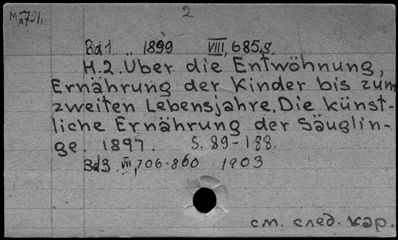 2
Bd 1 .. 1899 VIII, 685, S.
H.2. Uber die Entwöhnung,
Ernährung der Kinder bis zum
zweiten Lebensjahre. Die künst-
liche Ernährung der Säuglin-
ge. 1897. S. 89-188.
Bd 3 VIII, 706-860 1903
см. след. кар.